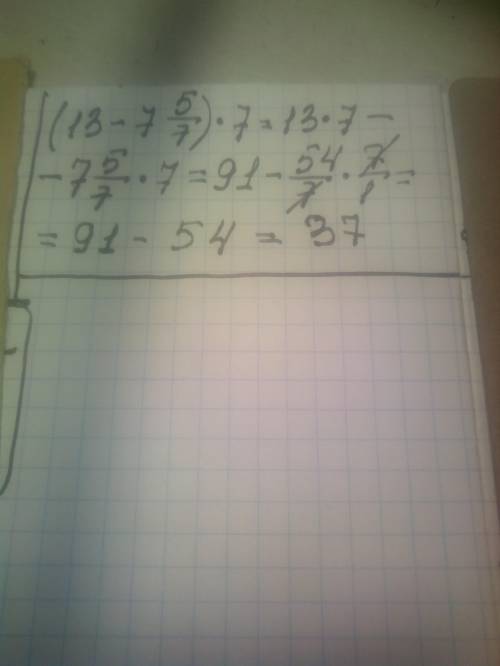 (13 - 7 5/7) · 7 = 13 · 7 -
- 7 5/7 · 7 = 91 - 54/7 · 7/1 =
= 91 - 54 = 37